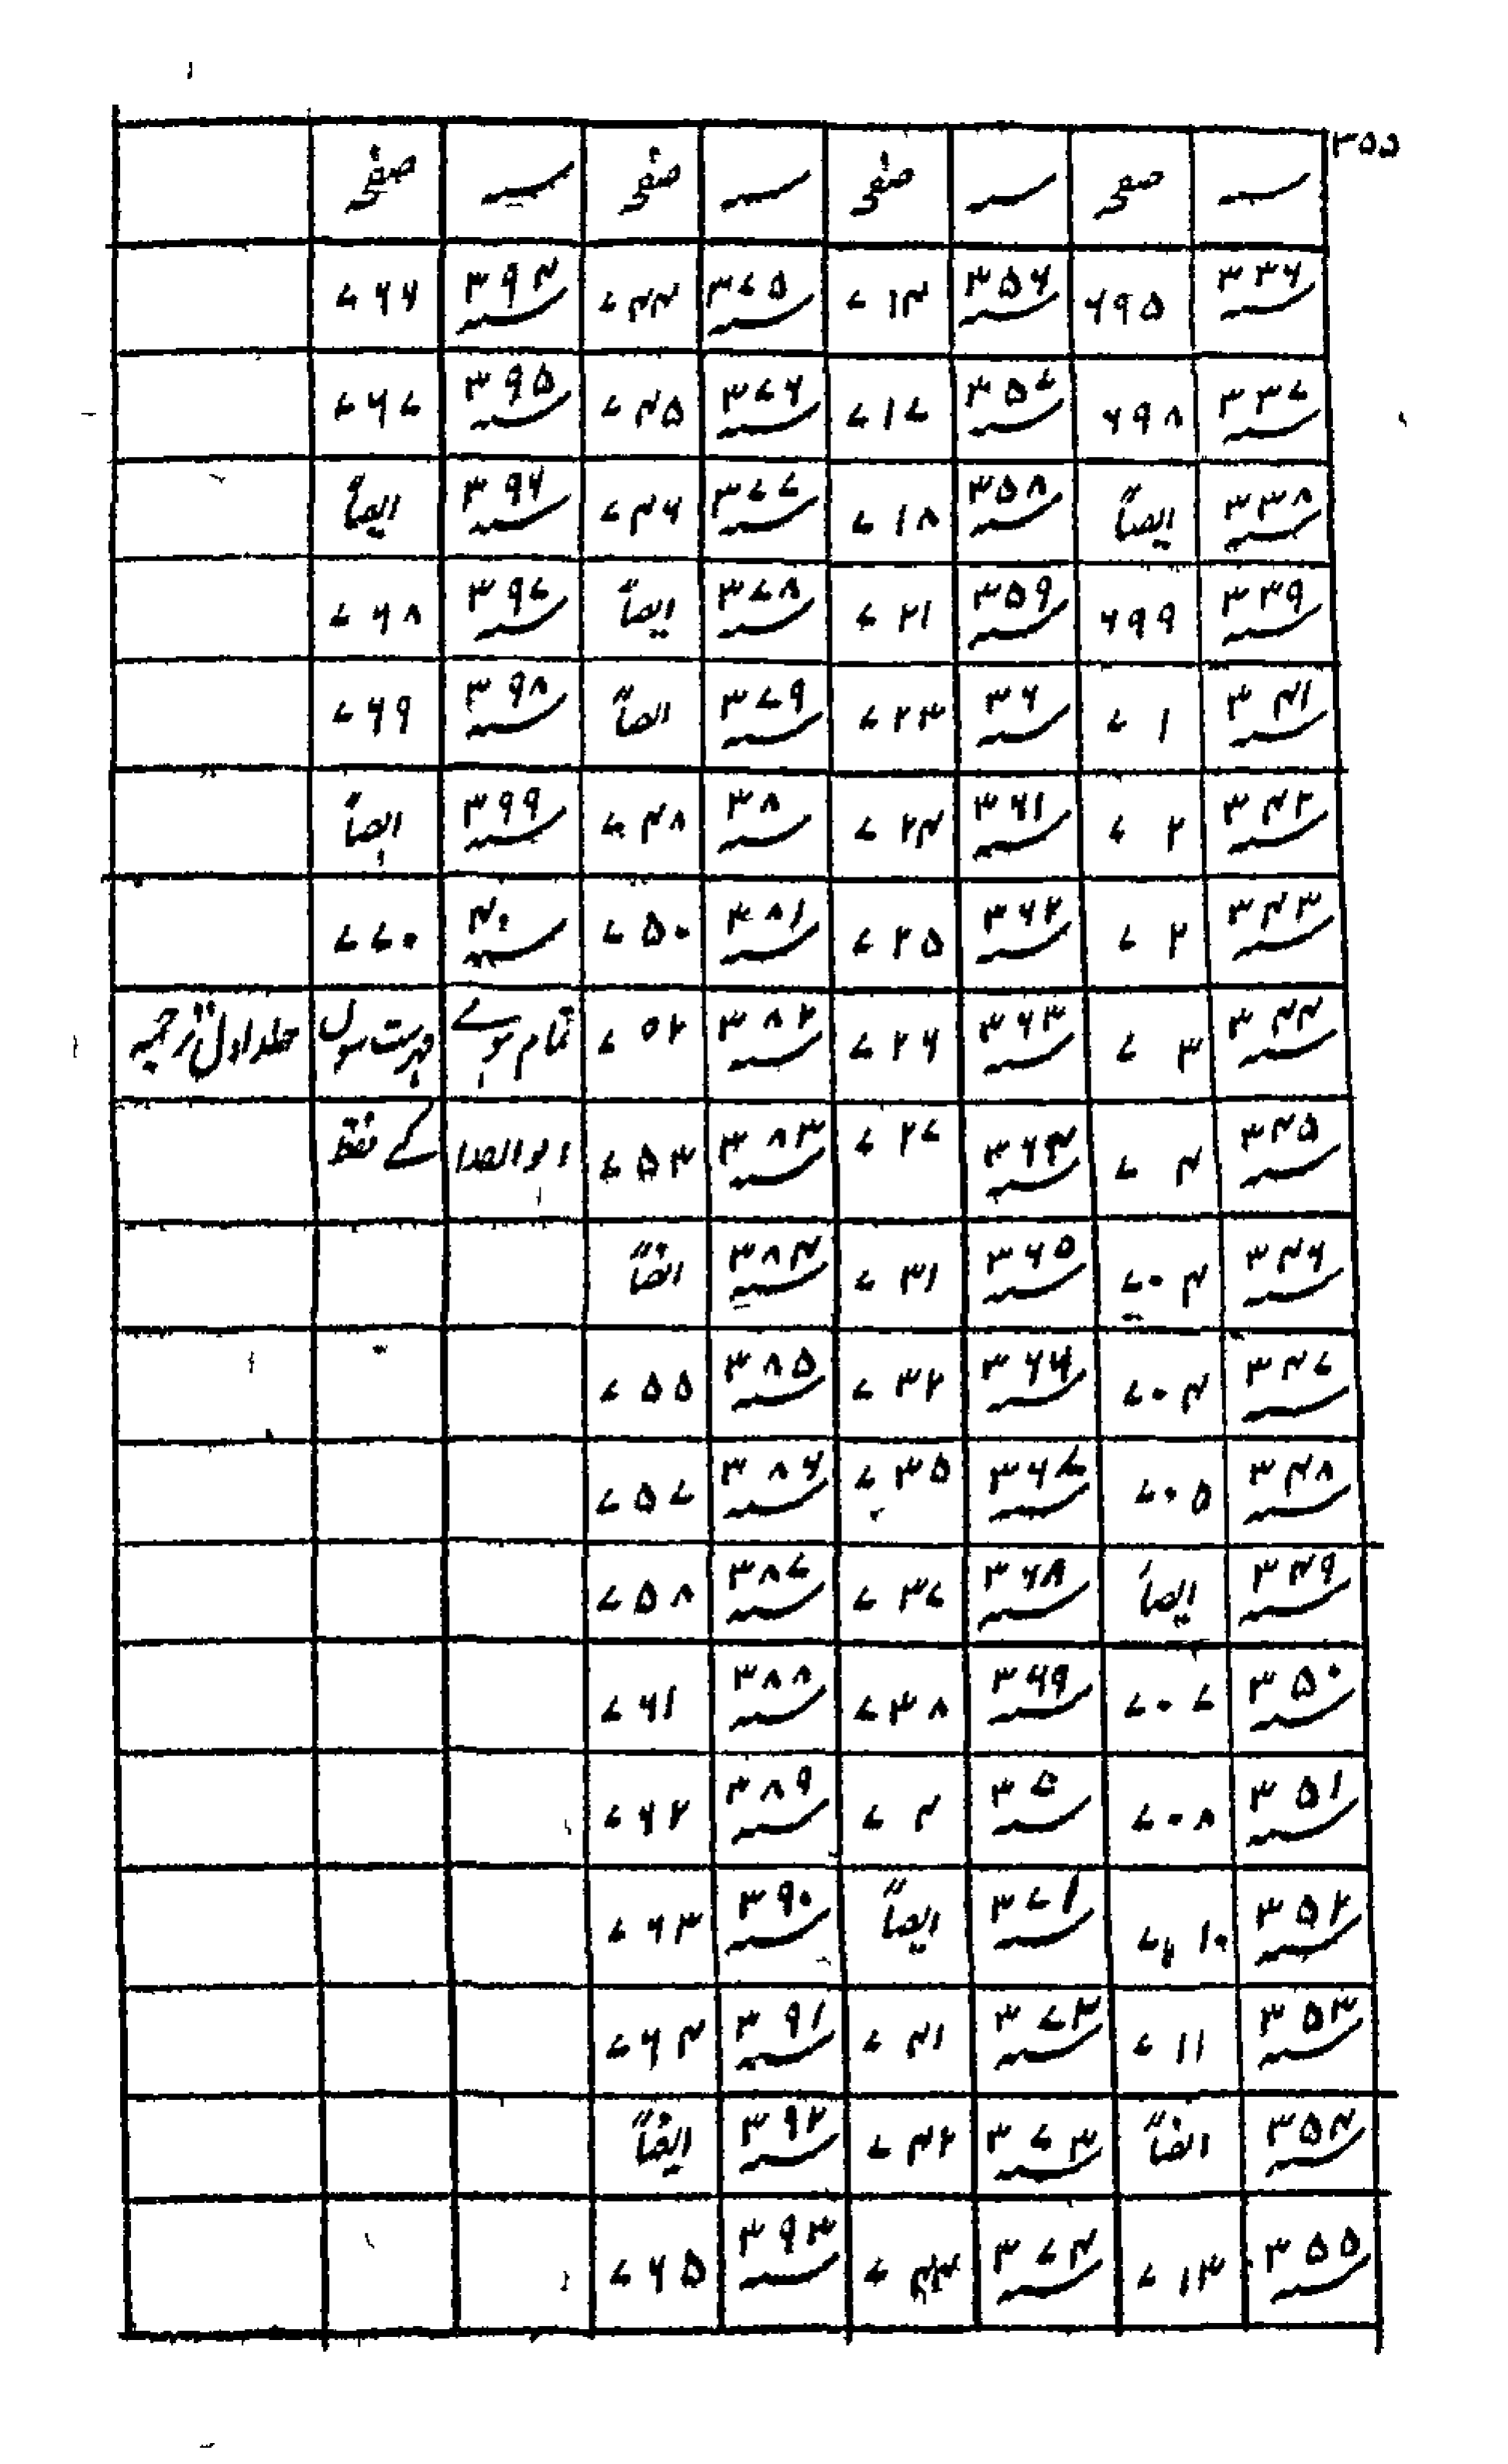 ۳۵۵
سنہ صفحہ سنہ صفحہ سنہ صفحہ سنہ صفحہ
۳۳۶ ۶۹۵ ۳۵۶ ۷۱۴ ۳۷۵ ۷۴۴ ۳۹۴ ۷۶۶
۳۳۷ ۶۹۸ ۳۵۷ ۷۱۷ ۳۷۶ ۷۴۵ ۳۹۵ ۷۶۷
۳۳۸ ایضاً ۳۵۸ ۷۱۸ ۳۷۷ ۷۴۶ ۳۹۶ ایضاً
۳۳۹ ۶۹۹ ۳۵۹ ۷۲۱ ۳۷۸ ایضاً ۳۹۷ ۷۶۸
۳۴۱ ۷۱ ۳۶ ۷۲۳ ۳۷۹ ایضاً ۳۹۸ ۷۶۹
۳۴۲ ۷۲ ۳۶۱ ۷۲۴ ۳۸ ۷۴۸ ۳۹۹ ایضاً
۳۴۳ ۷۲ ۳۶۲ ۷۲۵ ۳۸۱ ۷۵۰ ۴۰ ۷۷۰
۳۴۴ ۷۳ ۳۶۳ ۷۲۶ ۳۸۲ ۷۵۲ تمام ہوے فہرست سوں جلد اول ترجمہ
۳۴۵ ۷۴ ۳۶۴ ۷۲۷ ۳۸۳ ۷۵۳ ابوالفدا کے فقط
۳۴۶ ۷۰۴ ۳۶۵ ۷۳۱ ۳۸۴ ایضاً
۳۴۷ ۷۰۴ ۳۶۶ ۷۳۲ ۳۸۵ ۷۵۵
۳۴۸ ۷۰۵ ۳۶۷ ۷۳۵ ۳۸۶ ۷۵۷
۳۴۹ ایضاً ۳۶۸ ۷۳۷ ۳۸۷ ۷۵۸
۳۵۰ ۷۰۷ ۳۶۹ ۷۳۸ ۳۸۸ ۷۶۱
۳۵۱ ۷۰۸ ۳۷۰ ۷۴ ۳۸۹ ۷۶۲
۳۵۲ ۷۱۰ ۳۷۱ ایضاً ۳۹۰ ۷۶۳
۳۵۳ ۷۱۱ ۳۷۳ ۷۴۱ ۳۹۱ ۷۶۴
۳۵۴ ایضاً ۳۷۳ ۷۴۲ ۳۹۲ ایضاً
۳۵۵ ۷۱۳ ۳۷۴ ۷۴۳ ۳۹۳ ۷۶۵